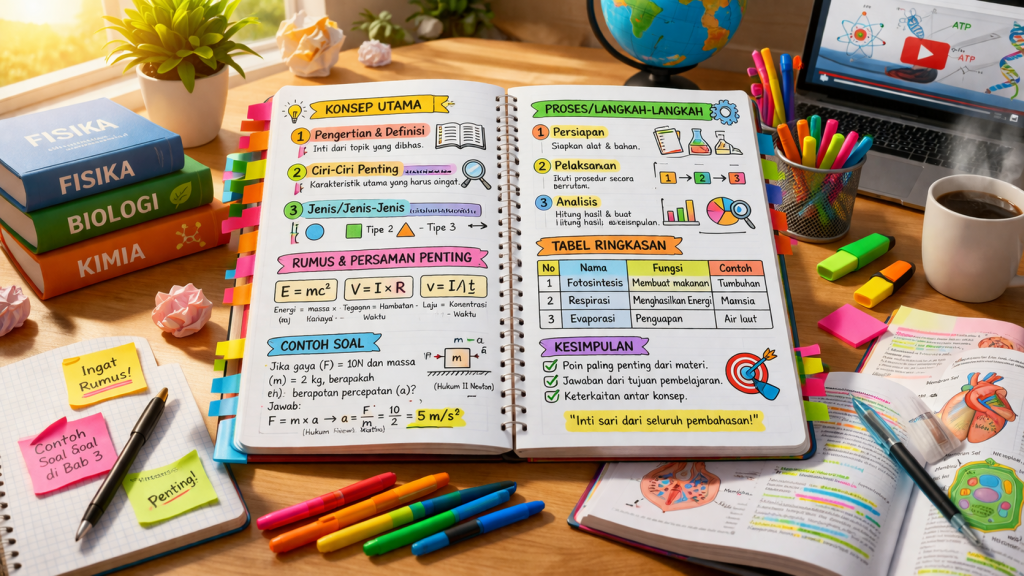 FISIKA
FISIKA
BIOLOGI
KIMIA
Ingat
Rumus!
Contoh
Soal Soal
di Bab 3
Penting!
KONSEP UTAMA
1 Pengertian & Definisi
Inti dari topik yang dibhas.
2 Ciri-Ciri Penting
Karakteristik utama yang harus aingat.
3 Jenis/Jenis-Jenis
Tipe 2 - Tipe 3
RUMUS & PERSAMAN PENTING
E = mc²
V = I × R
Energi = massa × Tegangn = Hambatan - Laju = Konsentrasi
Waktu
Waktu
CONTOH SOAL
Jika gaya (F) = 10N dan massa
(m) = 2 kg, berapakah
eh): berapatan percepatan (a)?
Jawab:
F = m × a → a = F/m = 10/2 = 5 m/s²
(Hukum
m
(Hukum II Newton)
PROSES/LANGKAH-LANGKAH
1 Persiapan
Siapkan alat & bahan.
2 Pelaksanan
Ikuti prosedur secara
berrutom.
1 → 2 → 3
3 Analisis
Hitung hasil & buat
TABEL RINGKASAN
No Nama Fungsi Contoh
1 Fotosintesis Membuat makanan Tumbuhan
2 Respirasi Menghasilkan Energi Mamsia
3 Evaporasi Penguapan Air laut
KESIMPULAN
Poin paling penting dari materi.
Jawaban dari tujuan pembelajaran.
Keterkaitan antar konsep.
"Inti sari dari seluruh pembahasan!"
ATP
ATP